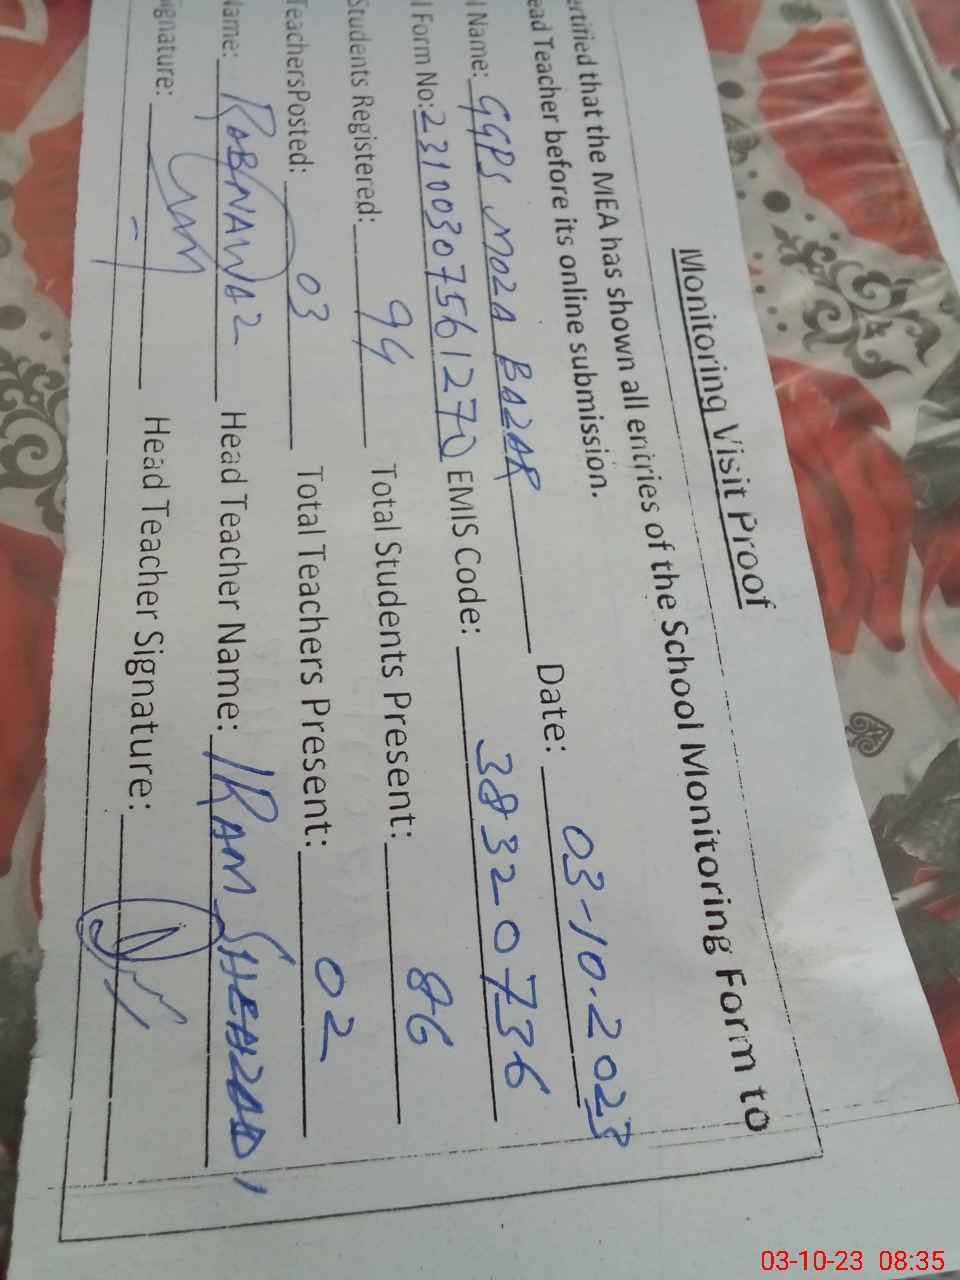 Monitoring Visit Proof
ertified that the MEA has shown all entries of the School Monitoring Form to
ead Teacher before its online submission.
l Name: GGPS MOZA BAZAR Date: 03-10-2023
l Form No: 23100307561270 EMIS Code: 38320736
Students Registered: 94 Total Students Present: 86
TeachersPosted: 03 Total Teachers Present: 02
Name: RABNAWAZ Head Teacher Name: IRAM SHEHZADI
ignature: Head Teacher Signature:
03-10-23 08:35